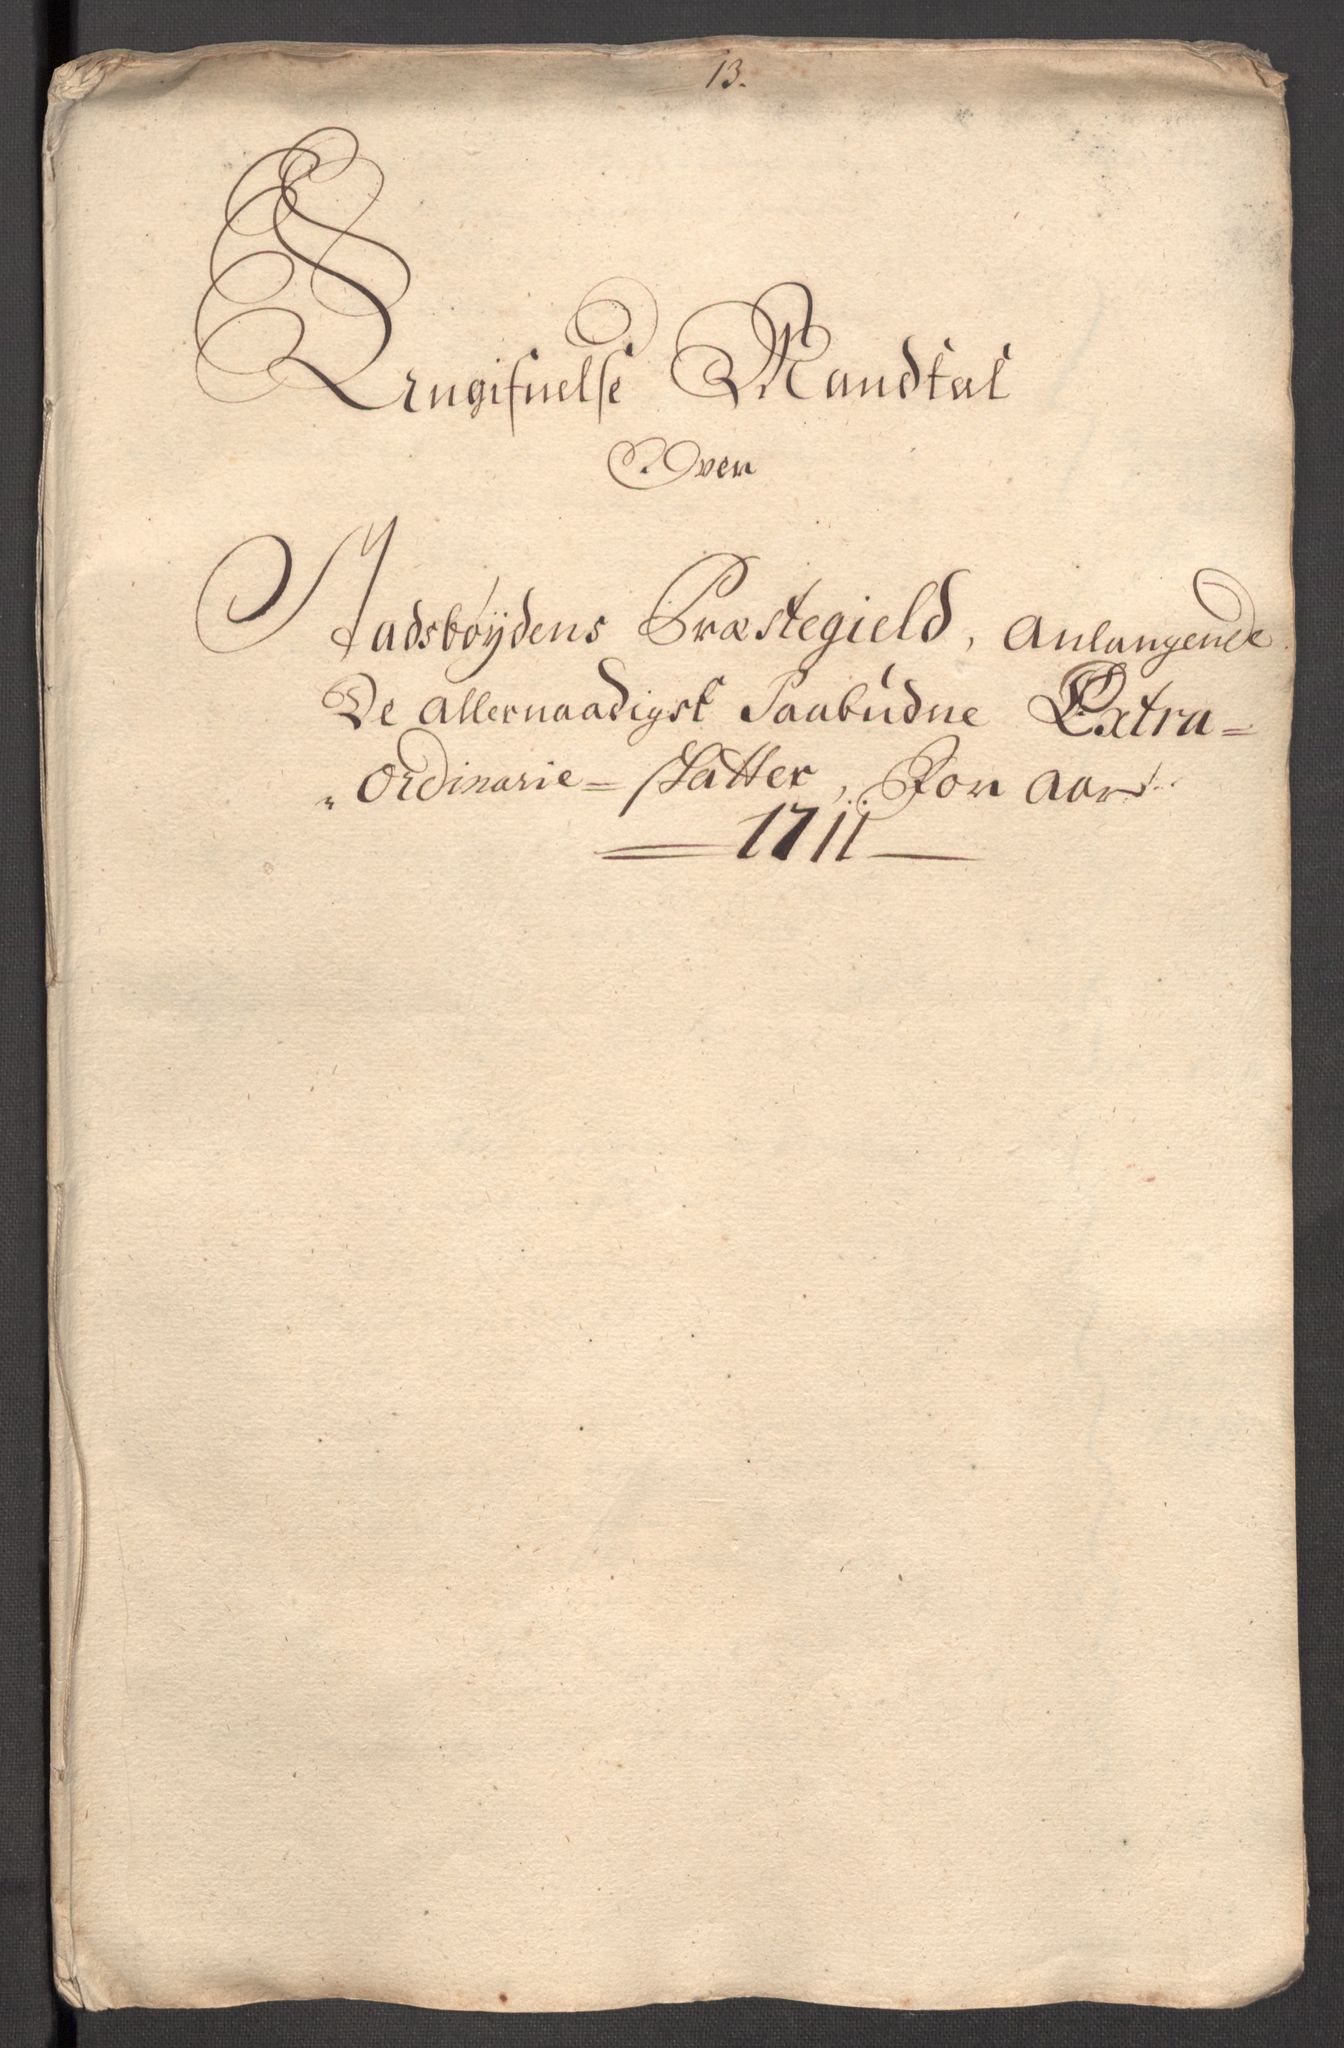 13.
Angifuelse Mandtal
Over
Stadsbøydens Præstegield, Anlangende
De Allernaadigst Paabudne Extra=
„Ordinarie= skatter, For Aar
1711